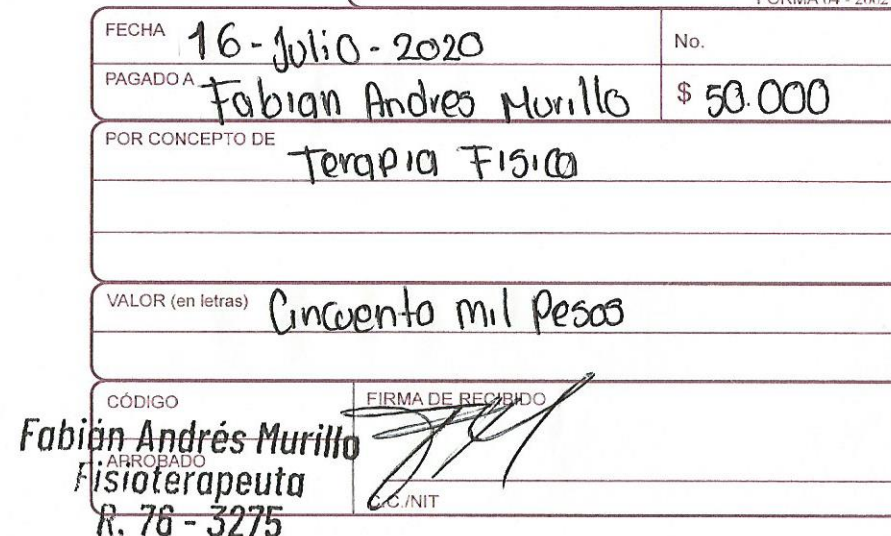 FORMA 04 - 2002
FECHA 16-Julio-2020 No.
PAGADO A Fabian Andres Murillo $ 50.000
POR CONCEPTO DE Terapia Fisica
VALOR (en letras) Cincuenta mil Pesos
CÓDIGO FIRMA DE RECIBIDO
Fabián Andrés Murillo
APROBADO
Fisioterapeuta
C.C./NIT
R. 76 - 3275